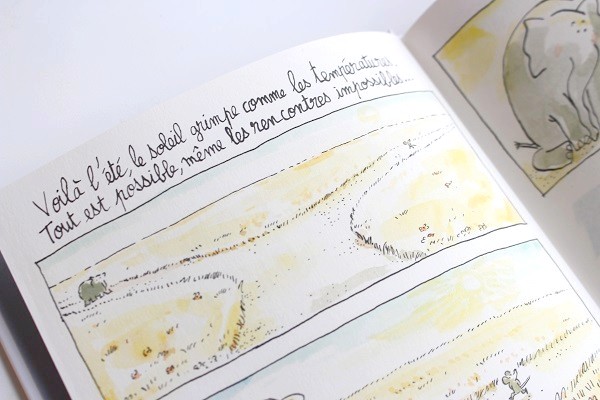 Voilà l'été, le soleil grimpe comme les températures.
Tout est possible, même les rencontres impossibles...